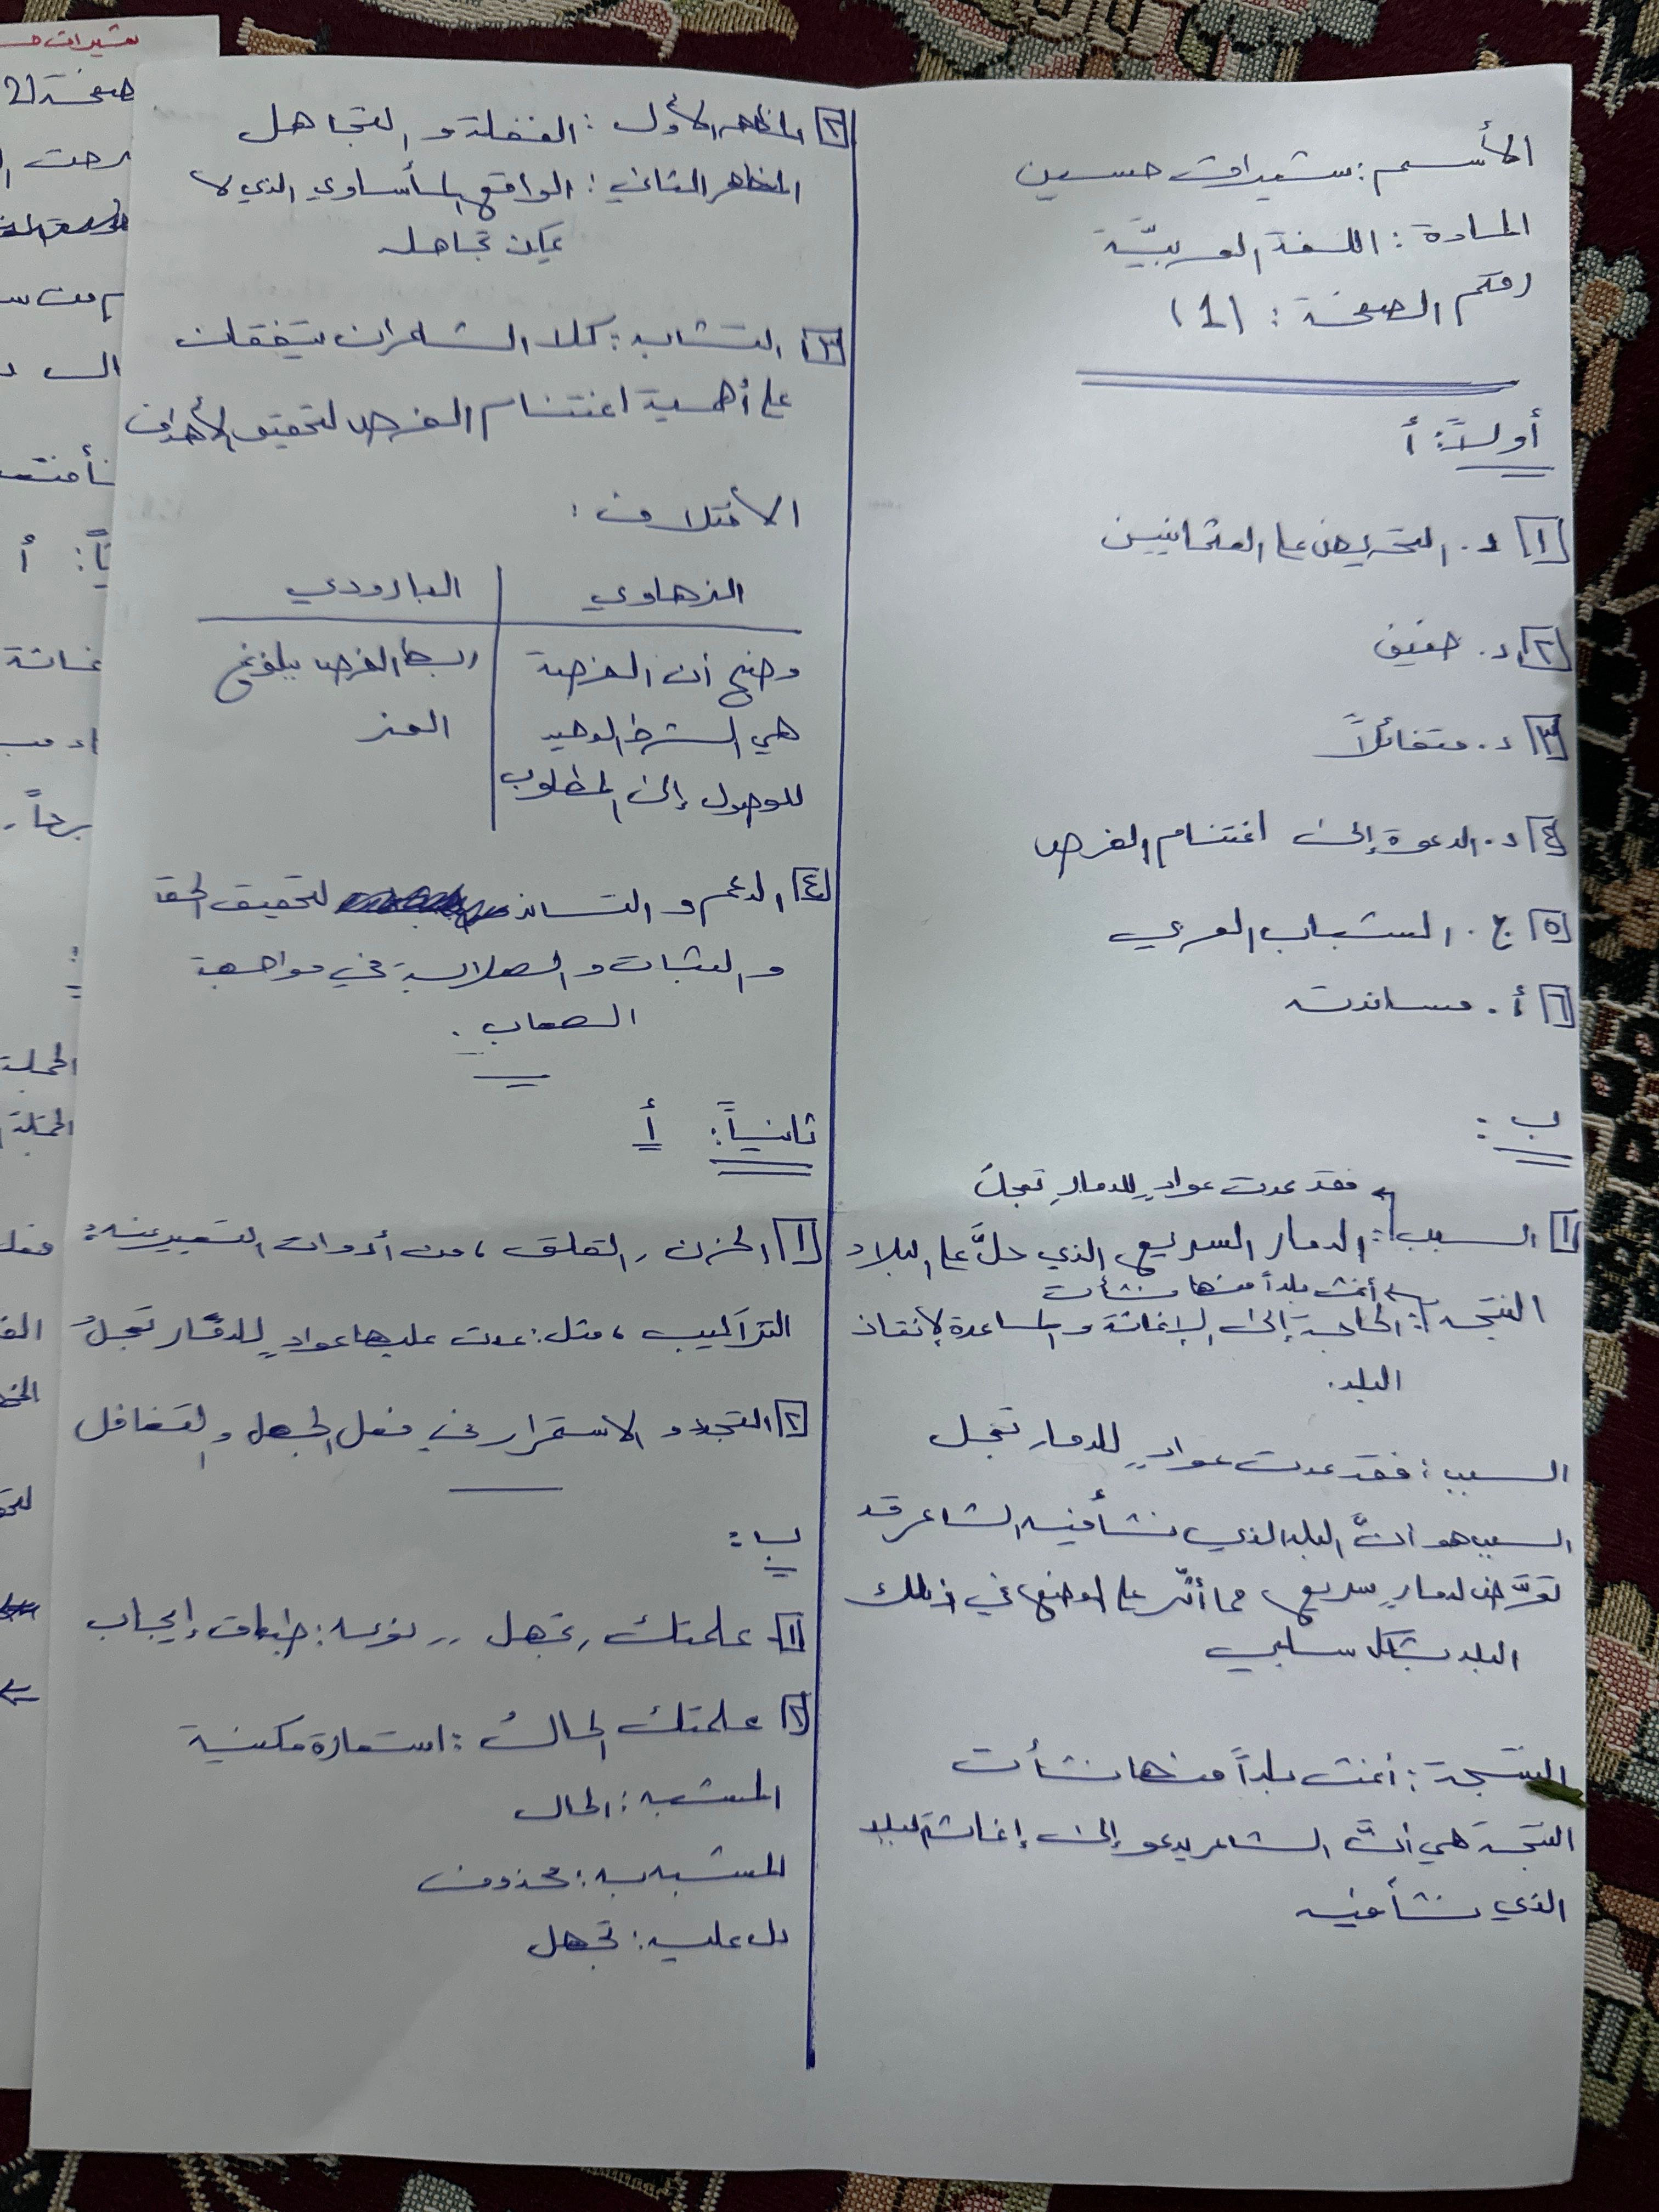 الأسم: شيرات حسين
المادة: اللغة العربيّة
رقم الصفحة: (1)
أولاً: أ
١ د. التحريض على العثمانيين
٢ د. حفيف
٣ د. متفائلاً
٤ د. الدعوة إلى اغتنام الفرص
٥ ج. الشباب العربي
٦ أ. مساندته
ب:
فقد عدت عوادٍ للدمارِ تعجلُ
١ السبب: الدمار السريع الذي حلَّ على البلاد
أغث بلداً منها نشأت
النتجة: الحاجة إلى الإغاثة والمساعدة لإنقاذ
البلد.
السبب: فقد عدت عوادٍ للدمار تعجل
السبب هو انَّ البلد الذي نشأ فيه الشاعر قد
تعرّض لدمارٍ سريع مما أثّر على الوضع في ذلك
البلد بشكل سلبي
النتيجة: أغث بلداً منها نشأت
النتجة هي أنَّ الشاعر يدعو إلى إغاثة البلد
الذي نشأ فيه
٢ المظهر الأول: الغفلة و التجاهل
المظهر الثاني: الواقع المأساوي الذي لا
يمكن تجاهله
٣ التشابه: كلا الشاعران يتفقان
على أهمية اغتنام الفرص لتحقيق الأهداف
الأختلاف:
الزهاوي البارودي
وضح أن الفرصة ربط الفرص ببلوغ
هي الشرط الوحيد العز
للوصول إلى المطلوب
٤ الدعم و التساند لتحقيق الحق
و الثبات و الصلابة في مواجهة
الصعاب.
ثانياً: أ
١ الحزن, القلق، من أدوات التعبير عنه:
التراكيب، مثل: عدت عليها عوادٍ للدمار تعجلُ
٢ التجدد و الاستمرار في فعل الجهل والتغافل
ب:
١- علمتك, تجهل,, نوعه: طباق إيجاب
٢ علمتك الحالُ: استعارة مكنية
المشبه: الحال
المشبه به: محذوف
دل عليه: تجهل
صفحة (2